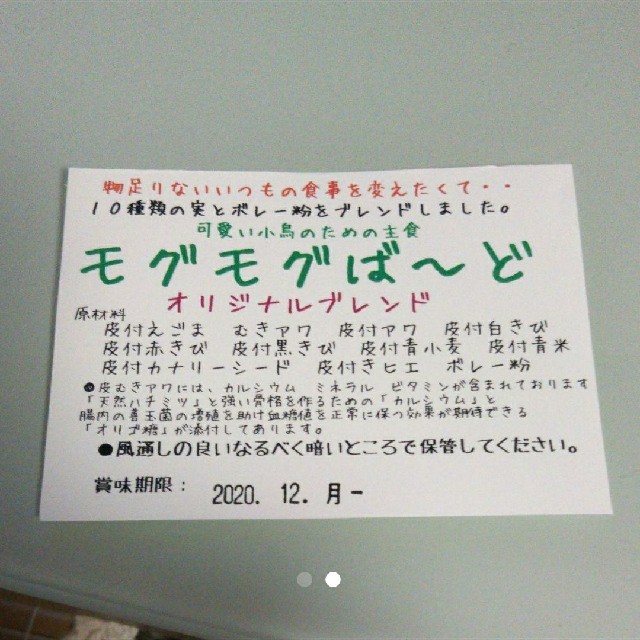 物足りないいつもの食事を変えたくて・・
10種類の実とボレー粉をブレンドしました。
可愛い小鳥のための主食
モグモグば～ど
オリジナルブレンド
原材料
皮付えごま　むきアワ　皮付アワ　皮付白きび
皮付赤きび　皮付黒きび　皮付青小麦　皮付青米
皮付カナリーシード　皮付きヒエ　ボレー粉
●皮むきアワには、カルシウム　ミネラル　ビタミンが含まれております
「天然ハチミツ」と強い骨格を作るための「カルシウム」と
腸内の善玉菌の増殖を助け血糖値を正常に保つ効果が期待できる
「オリゴ糖」が添付してあります。
●風通しの良いなるべく暗いところで保管してください。
賞味期限： 2020. 12. 月-